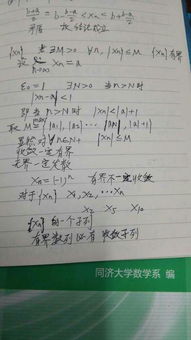 (b+a)/2 = b - (b-a)/2 < xn < b + (b-a)/2
矛盾 故结论成立
{xn} 若∃M>0 ∀n, |xn|≤M {xn}有界
设 lim n→∞ xn = a
ε0=1 ∃N>0 当n>N时
|xn-a|<1
即当n>N时 |xn|<|a|+1
取M=max{|a1|, |a2|, … |aN|, |a|+1}
显然对∀n∈N+ |xn|≤M
收敛一定有界
无界一定发散
xn=(-1)^n 有界不一定收敛
对于{xn} x1, x2, …xn
x2 x5 x10
{xn}的一个子列
有界数列必有收敛子列
同济大学数学系 编